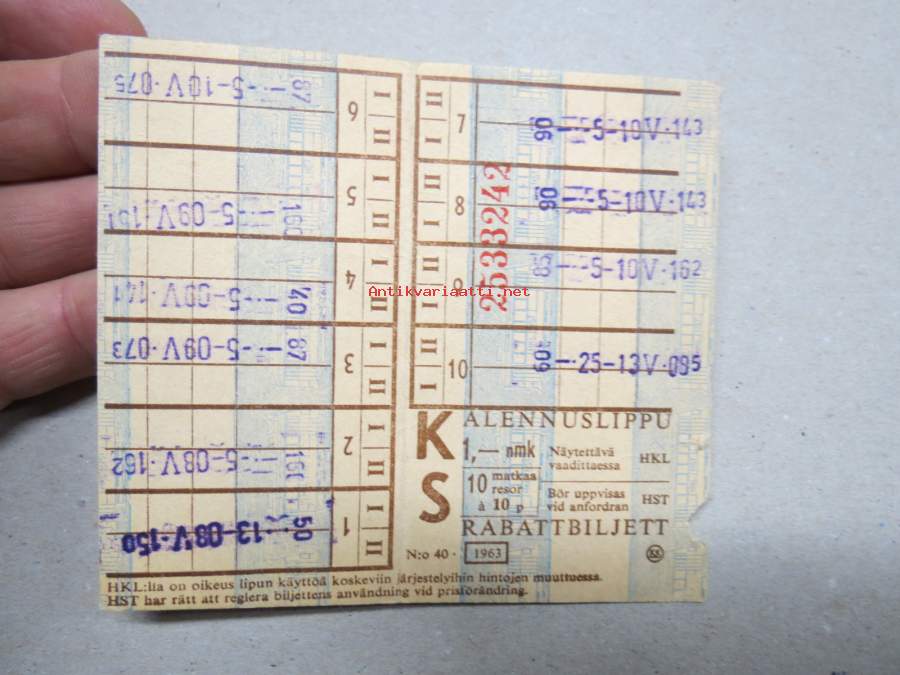 6 I II
5 I II
4 I II
3 I II
2 I II
1 I II
87 — ·-5-10V·075
5-09V·
40 — ·-5-09V·141
87 — ·-5-09V·073
5-08V·162
50 ·13-08V·150
II I 7
II I 8
II I 9
II I 10
90 — ·-5-10V·143
90 — ·-5-10V·143
— ·-5-10V·162
60 — ·25-13V·095
2533242
Antikvariaatti.net
KALENNUSLIPPU
1,— nmk
Näytettävä vaadittaessa
HKL
10 matkaa resor à 10 p
Bör uppvisas vid anfordran
HST
S RABATTBILJETT
N:o 40 · 1963
HKL:lla on oikeus lipun käyttöä koskeviin järjestelyihin hintojen muuttuessa.
HST har rätt att reglera biljettens användning vid prisförändring.